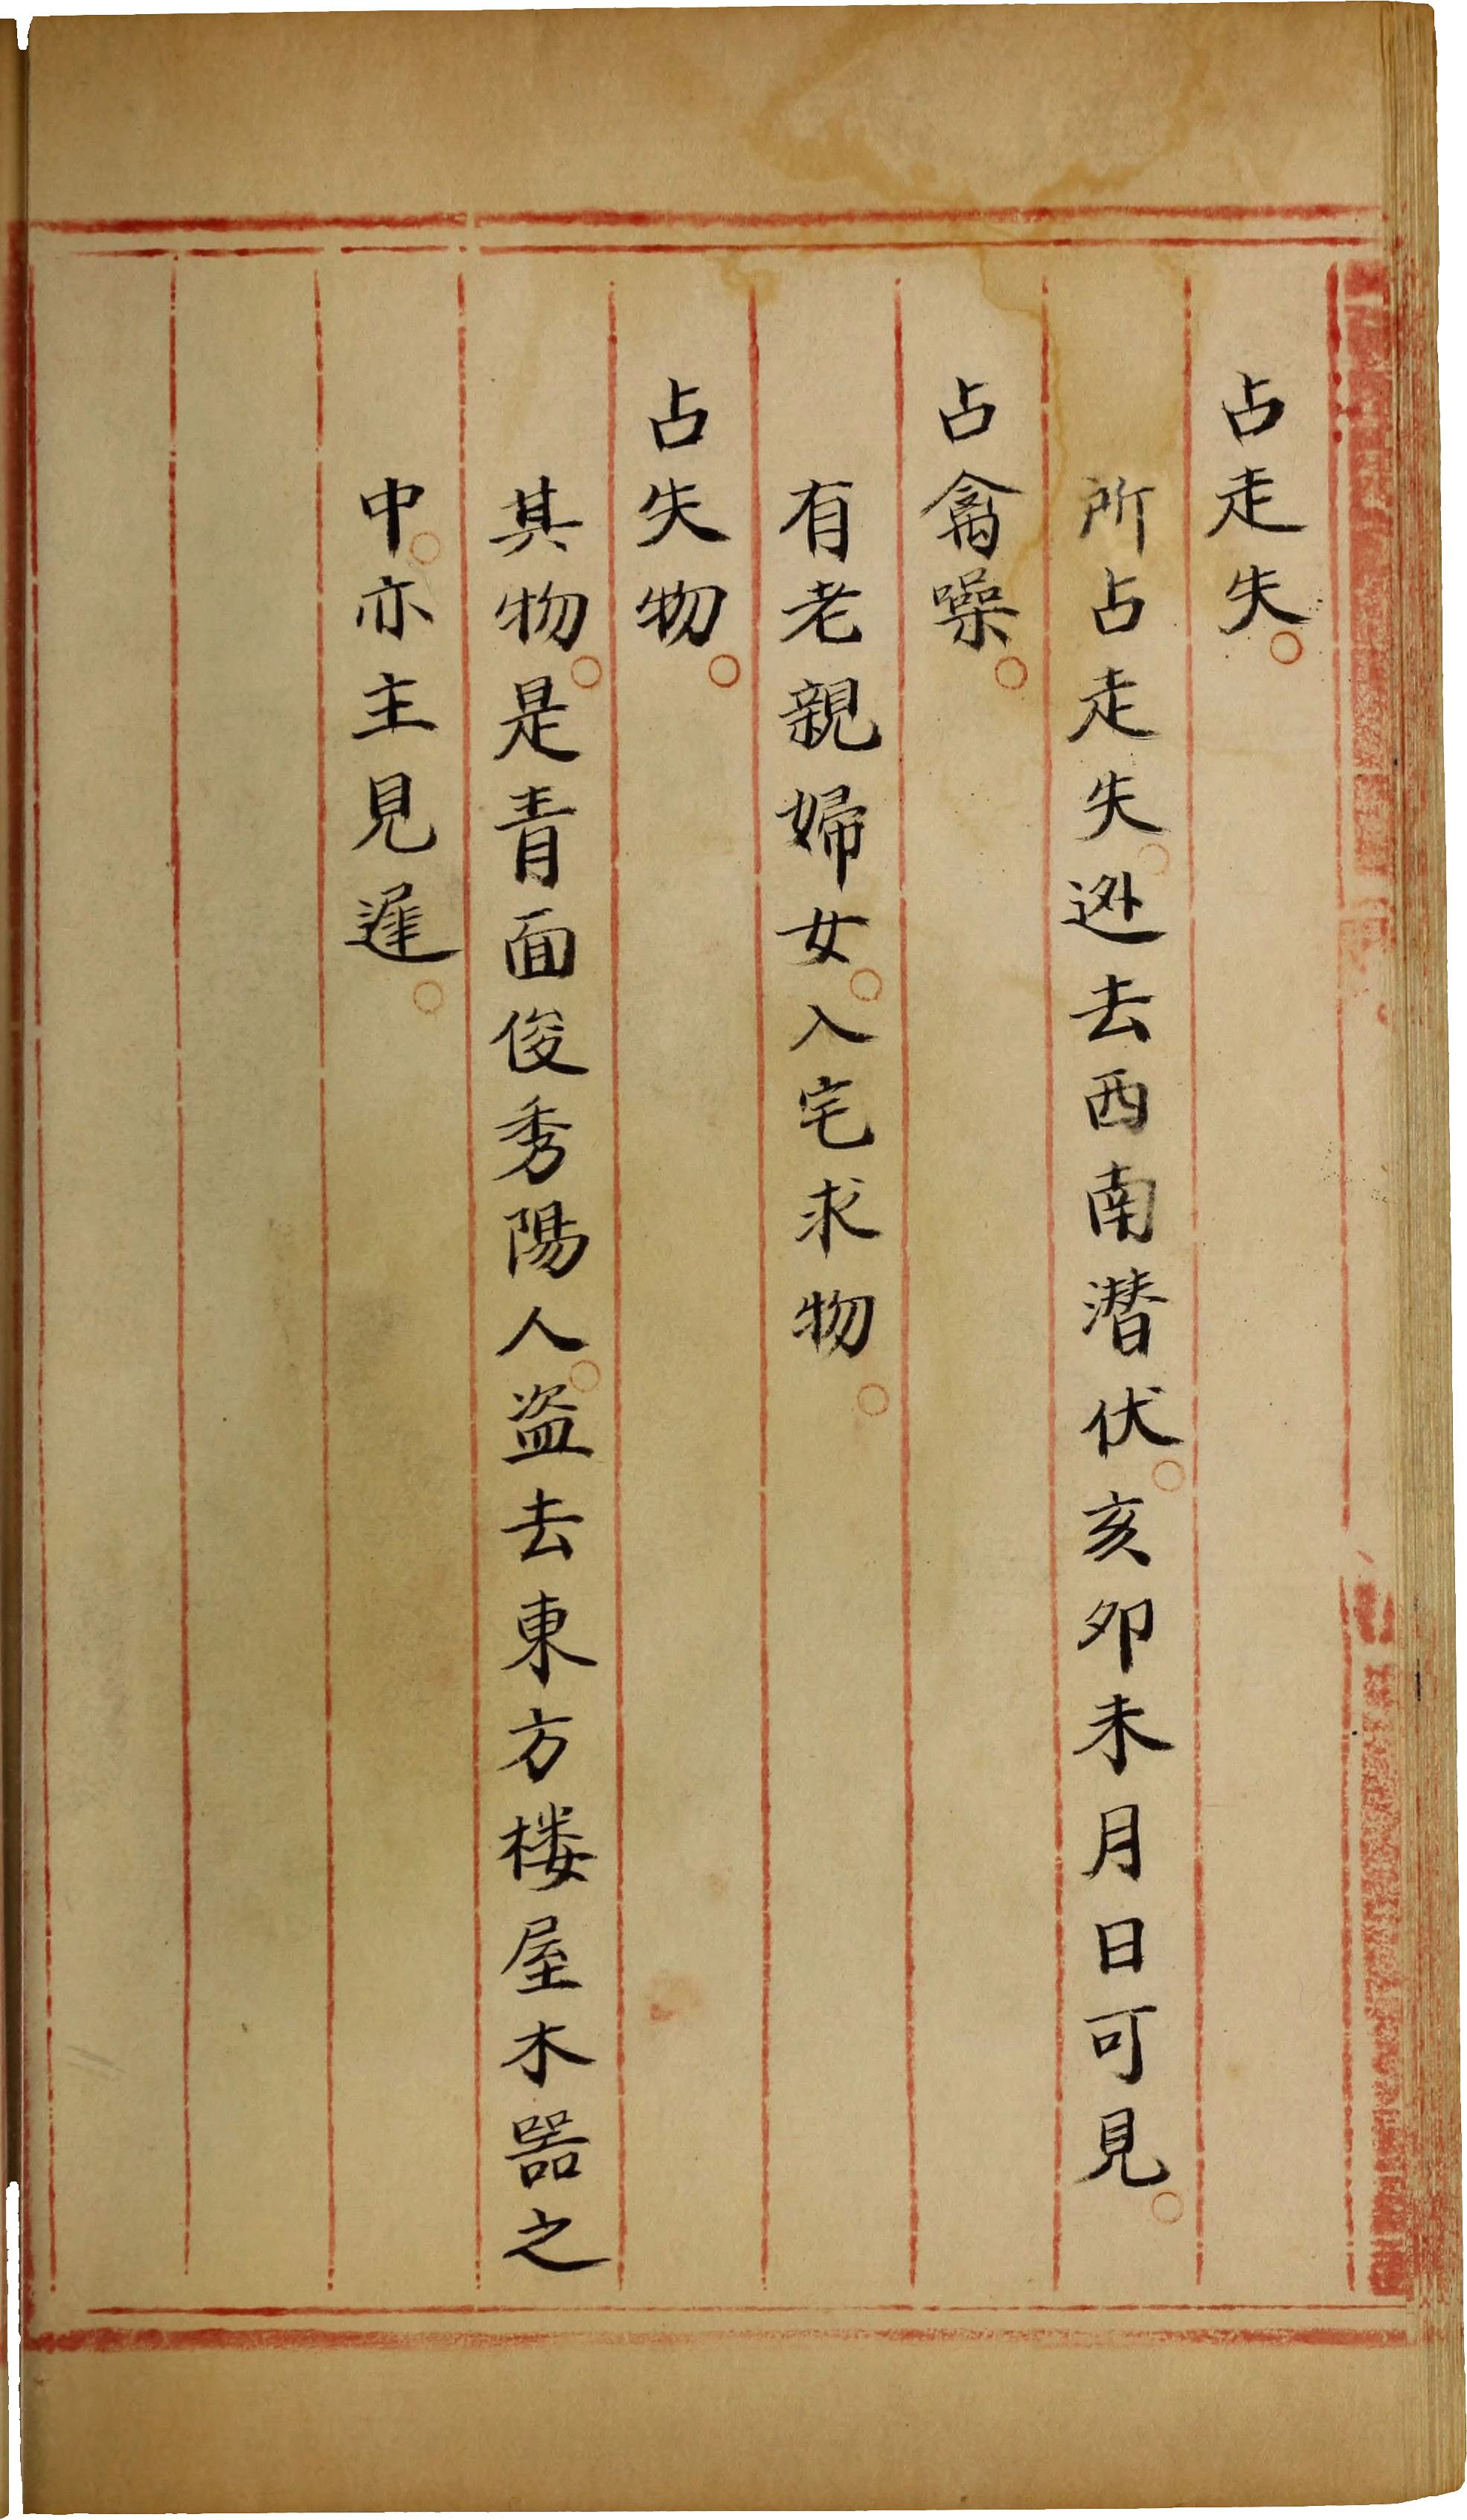 占走失。
所占走失。迯去西南潛伏。亥夘未月日可見。
占禽噪。
有老親婦女。入宅求物。
占失物。
其物。是青面俊秀陽人。盗去東方楼屋木噐之
中。亦主見遲。